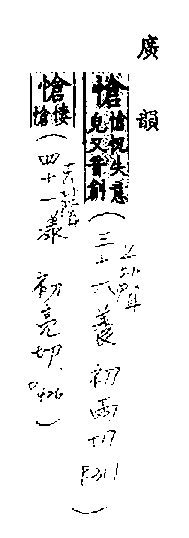 廣韻
愴 愴怳失意皃又音創
（三十六養 初兩切 P.311）
愴 悽愴
（四十一漾 初亮切 P.426）